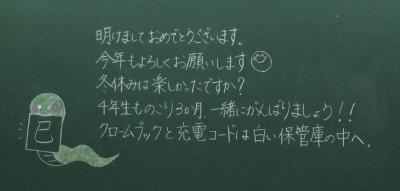 明けましておめでとうございます。
今年もよろしくお願いします
冬休みは楽しかったですか？
4年生ものこり3ヵ月、一緒にがんばりましょう！！
クロームブックと充電コードは白い保管庫の中へ。
巳